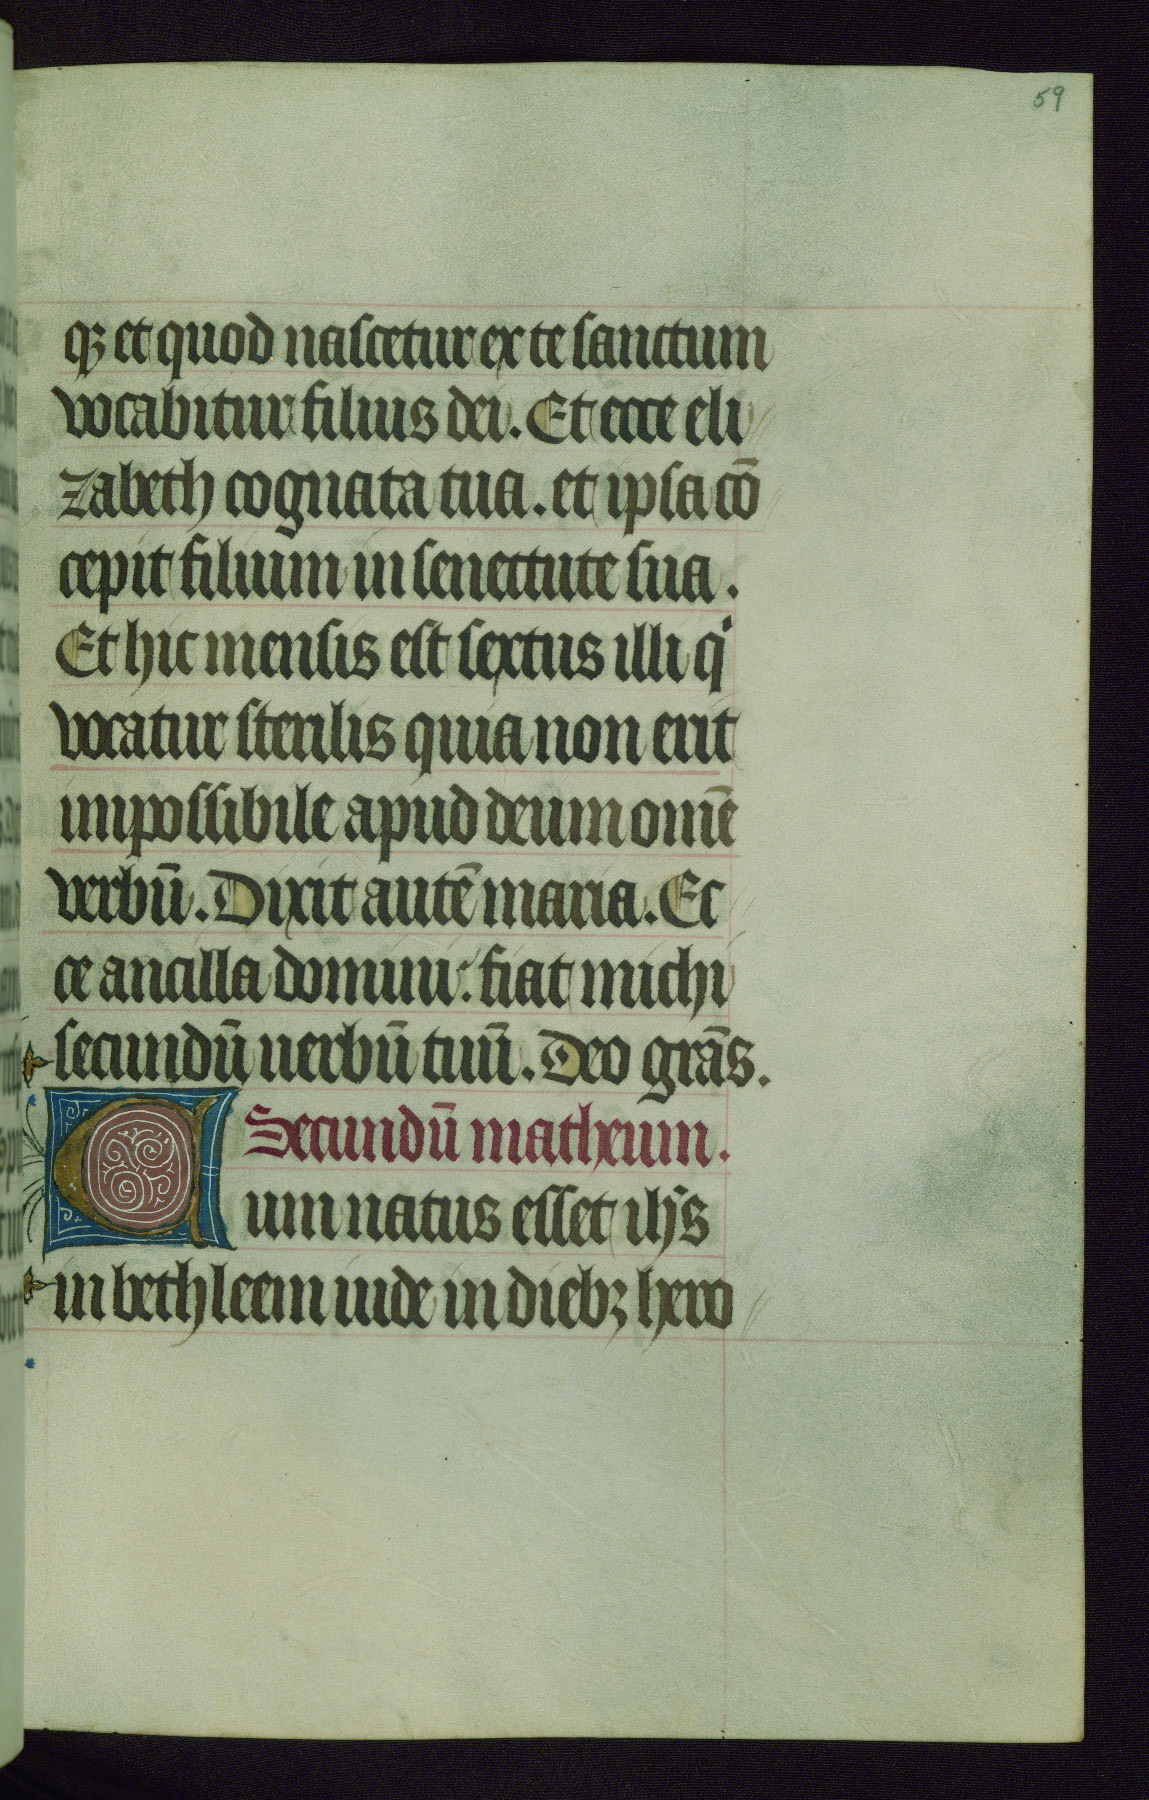 59
qꝫ et quod nascetur ex te sanctum
vocabitur filius dei. Et ecce eli
zabeth cognata tua. et ipsa cō
cepit filium in senectute sua.
Et hic mensis est sextus illi q̇
vocatur sterilis quia non erit
impossibile apud deum omē
verbū. Dixit autē maria. Ec
ce ancilla domini: fiat michi
secundū uerbū tuū. Deo grās.
Secundū matheum.
Cum natus esset ihs̄
in bethleem iude in diebꝫ hero